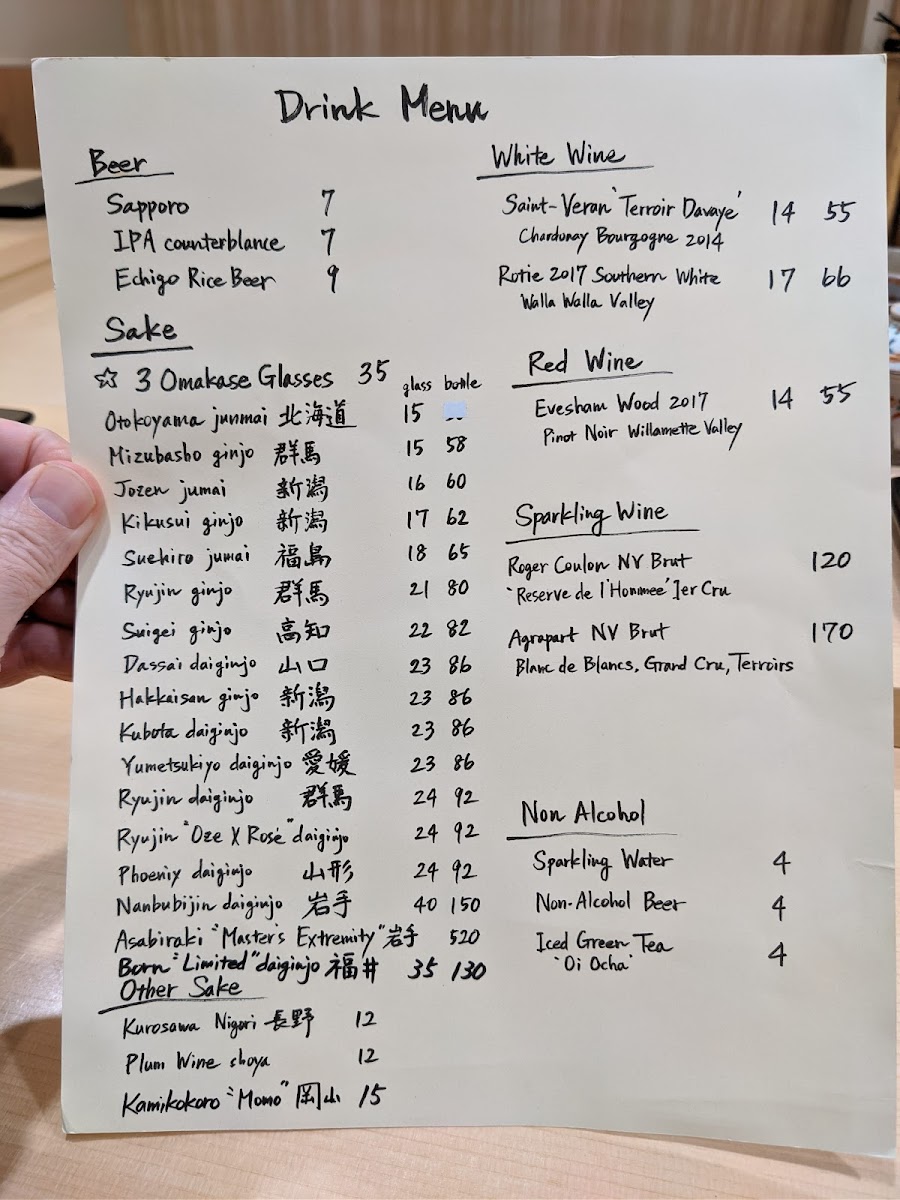 Drink Menu
Beer
Sapporo 7
IPA counterblance 7
Echigo Rice Beer 9
Sake
☆ 3 Omakase Glasses 35
glass bottle
Otokoyama junmai 北海道 15
Mizubasho ginjo 群馬 15 58
Jozen jumai 新潟 16 60
Kikusui ginjo 新潟 17 62
Suehiro jumai 福島 18 65
Ryujin ginjo 群馬 21 80
Suigei ginjo 高知 22 82
Dassai daiginjo 山口 23 86
Hakkaisan ginjo 新潟 23 86
Kubota daiginjo 新潟 23 86
Yumetsukiyo daiginjo 愛媛 23 86
Ryujin daiginjo 群馬 24 92
Ryujin "Oze X Rosé" daiginjo 24 92
Phoenix daiginjo 山形 24 92
Nanbubijin daiginjo 岩手 40 150
Asabiraki "Master's Extremity" 岩手 520
Born "Limited" daiginjo 福井 35 130
Other Sake
Kurosawa Nigori 長野 12
Plum Wine choya 12
Kamikokoro "Momo" 岡山 15
White Wine
Saint-Veran 'Terroir Davaye' 14 55
Chardonay Bourgogne 2014
Rotie 2017 Southern White 17 66
Walla Walla Valley
Red Wine
Evesham Wood 2017 14 55
Pinot Noir Willamette Valley
Sparkling Wine
Roger Coulon NV Brut 120
'Reserve de l'Hommee' 1er Cru
Agrapart NV Brut 170
Blanc de Blancs, Grand Cru, Terroirs
Non Alcohol
Sparkling Water 4
Non-Alcohol Beer 4
Iced Green Tea 4
'Oi Ocha'